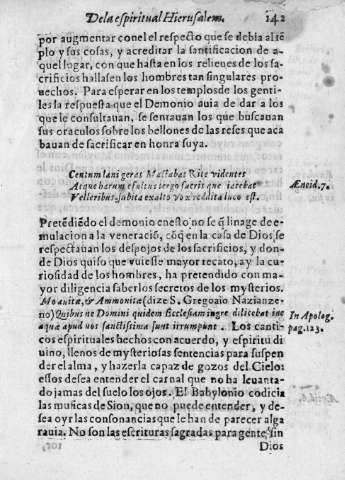 De la espiritual Hierusalem. 142
por augmentar con el respecto que se debia al tē
plo y sus cosas, y acreditar la santificacion de a-
quel lugar, con que hasta en los relieues de los sa-
crificios hallasen los hombres tan singulares pro-
uechos. Para esperar en los templos de los genti-
les la respuesta que el Demonio auia de dar a los
que le consultauan, se sentauan los que buscauan
sus oraculos sobre los bellones de las reses que aca
bauan de sacrificar en honra suya.
Centum lanigeras Mactabas Rite videntes
Atque harum efultus tergo sacris que iacebat Æneid. 7.
Velleribus subita exalto vox reddita luco est.
Pretēdiēdo el demonio en esto no se q̄ linage de e-
mulacion a la veneraciō, cōq̄ en la casa de Dios se
respectauan los despojos de los sacrificios, y don-
de Dios quiso que vuiesse mayor recato, ay la cu-
riosidad de los hombres, ha pretendido con ma-
yor diligencia saber los secretos de los mysterios.
Moauitæ, & Ammonitæ (dize S. Gregoaio Nazianze-
no) Quibus ne Domini quidem Ecclesiam ingredi licebat in In Apolog.
aqua apud nos sanctissima sunt irrumpunt. Los canti- pag. 123.
cos espirituales hechos con acuerdo, y espiritu di
uino, llenos de mysteriosas sentencias para suspen
der el alma, y hazerla capaz de gozos del Cielo:
essos desea entender el carnal que no ha leuanta-
do jamas del suelo los ojos. El Babylonio codicia
las musicas de Sion, que no puede entender, y de-
sea oyr las consonancias que le han de parecer alga
rauia. No son las escrituras sagradas para gente sin
Dios